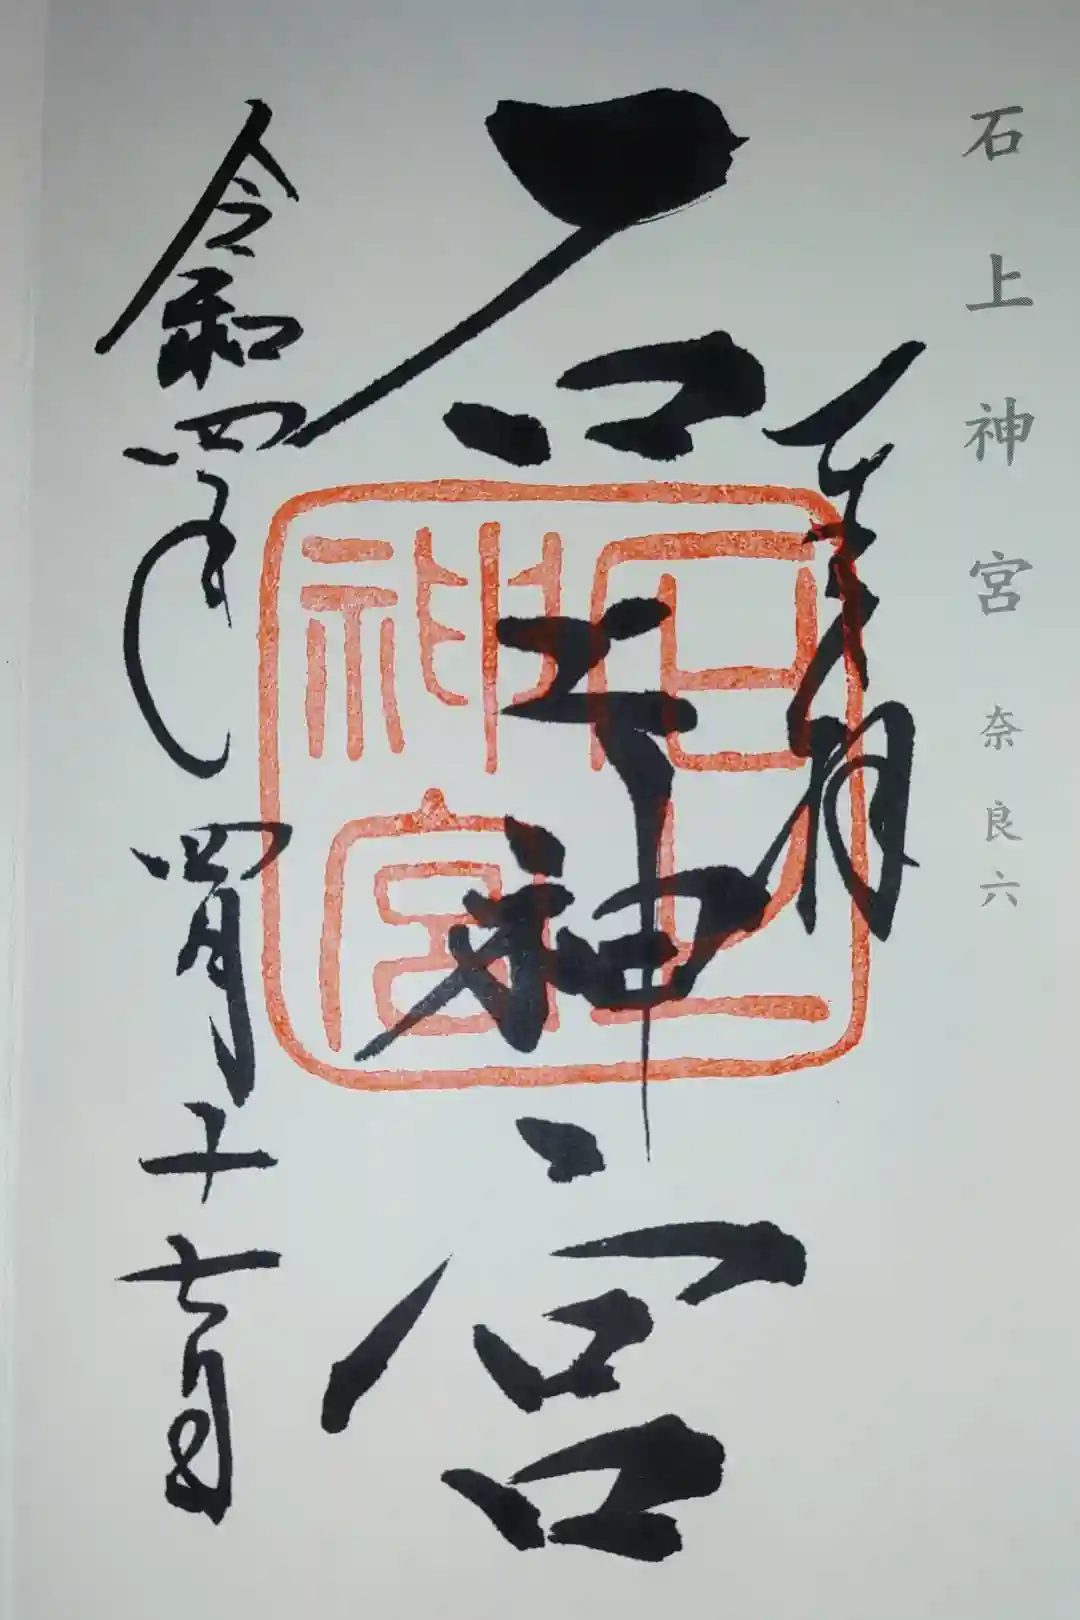 石上神宮 奈良六
奉拝
石上神宮
石上
神宮
令和四年四月十七日